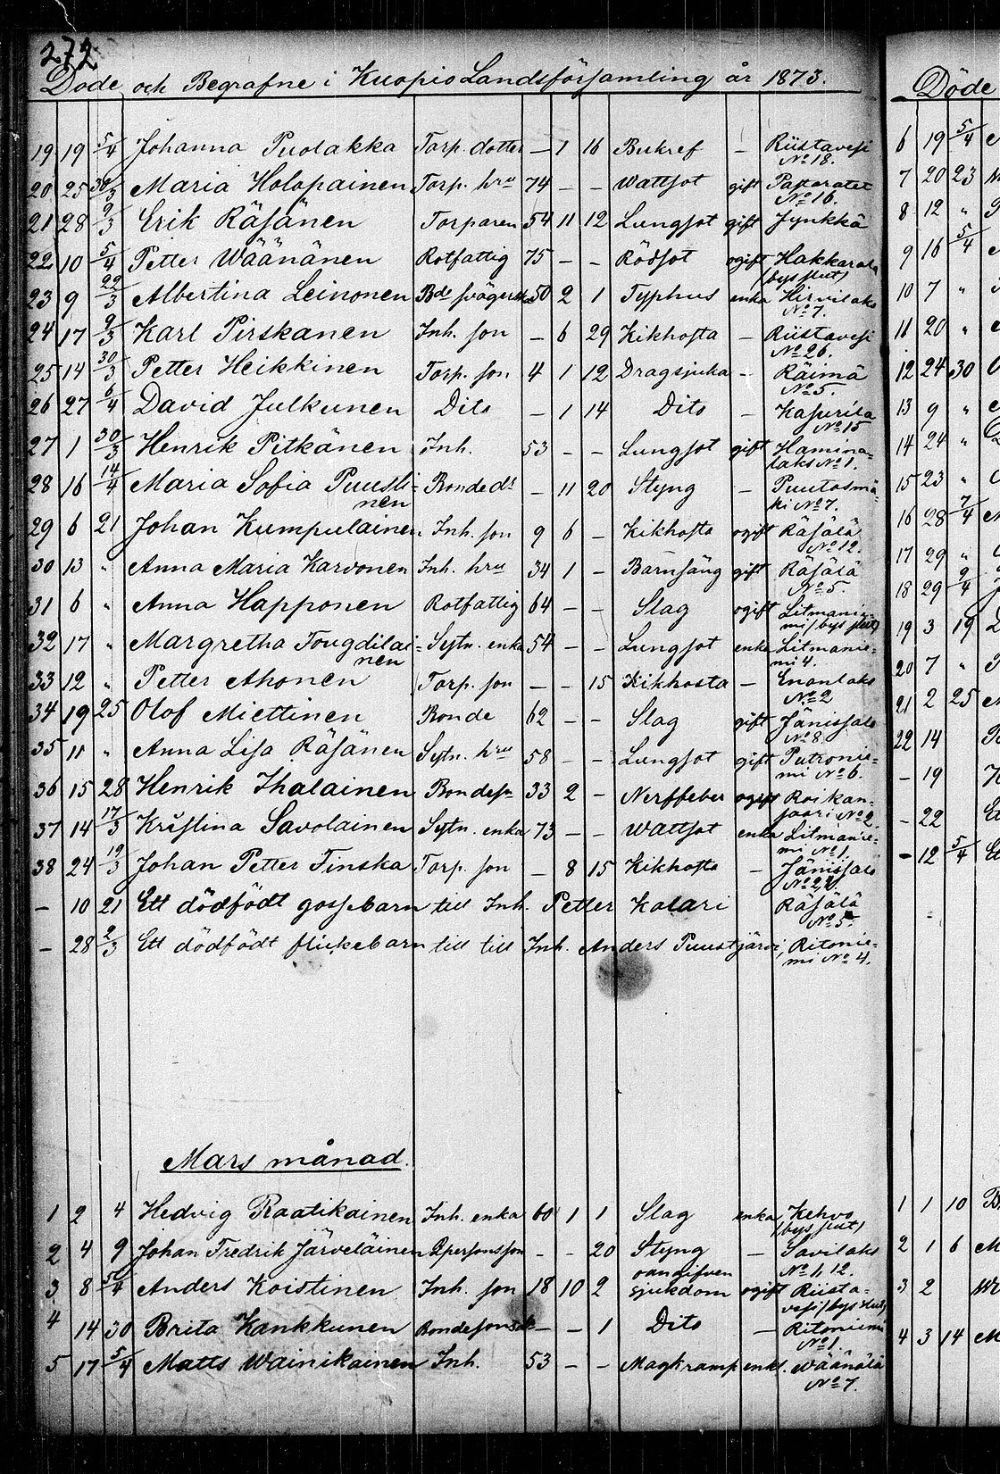 272
Döde och Begrafne i Kuopio Landsförsamling år 1873.
19 19 5/4 Johanna Puolakka Torp. dotter — 7 16 Bukref — Riistavesi
No 18.
20 25 30/3 Maria Holopainen Torp. hru 74 — — Wattsot gift Pastoratet
No 16.
21 28 9/3 Erik Räsänen Torparen 54 11 12 Lungsot gift Jynkkä
22 10 5/4 Petter Wäänänen Rotfattig 75 — — Rödsot ogift Hakkarala
(bys slut)
23 9 22/3 Albertina Leinonen Bde svägerska 50 2 1 Typhus enka Hirvilaks
No 7.
24 17 9/3 Karl Pirskanen Inh. son — 6 29 Kikhosta — Riistavesi
No 26.
25 14 30/3 Petter Heikkinen Torp. son 4 1 12 Dragsjuka — Räimä
No 5.
26 27 6/4 David Julkunen Dito — 1 14 Dito — Kasurila
No 15
27 1 30/3 Henrik Pitkänen Inh. 53 — — Lungsot gift Hamina-
laks No 1.
28 16 14/4 Maria Sofia Puusti- Bonde dr — 11 20 Styng — Puutosmä-
nen ki No 7.
29 6 21 Johan Kumpulainen Inh. son 9 6 — Kikhosta ogift Räsälä
No 12.
30 13 " Anna Maria Karvonen Inh. hru 34 1 — Barnsäng gift Räsälä
No 5.
31 6 " Anna Happonen Rotfattig 64 — — Slag ogift Litmanie-
mi (bys slut)
32 17 " Margretha Tougdilai- Sytn. enka 54 — — Lungsot enka Litmanie-
nen mi 4.
33 12 " Petter Ahonen Torp. son — — 15 Kikhosta — Enanlaks
No 2
34 19 25 Olof Miettinen Bonde 62 — — Slag gift Jänissalo
No 8.
35 11 " Anna Lisa Räsänen Sytn. hru 58 — — Lungsot gift Putronie-
mi No 6.
36 15 28 Henrik Ihalainen Bondesn 33 2 — Nerffeber ogift Roikan-
saari No 2.
37 14 17/3 Kristina Savolainen Sytn. enka 73 — — Wattsot enka Litmanie-
mi No 1.
38 24 19/3 Johan Petter Finska Torp. son — 8 15 Kikhosta — Jänissalo
No 24.
— 10 21 Ett dödfödt gossebarn till Inh. Petter Kalari Räsälä
No 5.
— 28 2/3 Ett dödfödt flickebarn till till Inh. Anders Puustjärvi, Ritonie-
mi No 4.
Mars månad.
1 2 4 Hedvig Raatikainen Inh. enka 60 1 1 Slag enka Kehvo
(bys slut)
2 4 9 Johan Fredrik Järveläinen Qpersons son — — 20 Styng — Savilaks
No 1, 12.
3 8 5/4 Anders Koistinen Inh. son 18 10 2 oangifven
sjukdom ogift Riista-
vesi (bys slut)
4 14 30 Brita Kankkunen Bondesons dr — — 1 Dito — Ritoniemi
No 1.
5 17 5/4 Matts Wainikainen Inh. 53 — — Magkramp enkl. Wäänälä
No 7.
Döde
6 19 5/4
7 20 23
8 12 "
9 16 5/4
10 7 "
11 20 "
12 24 30
13 9 "
14 24 "
15 23 "
16 28 7/4
17 29 "
18 29 9/4
19 3 19
20 7 "
21 2 25
22 14
— 19
— 22
— 12 5/4
1 1 10
2 1 6
3 2
4 3 14